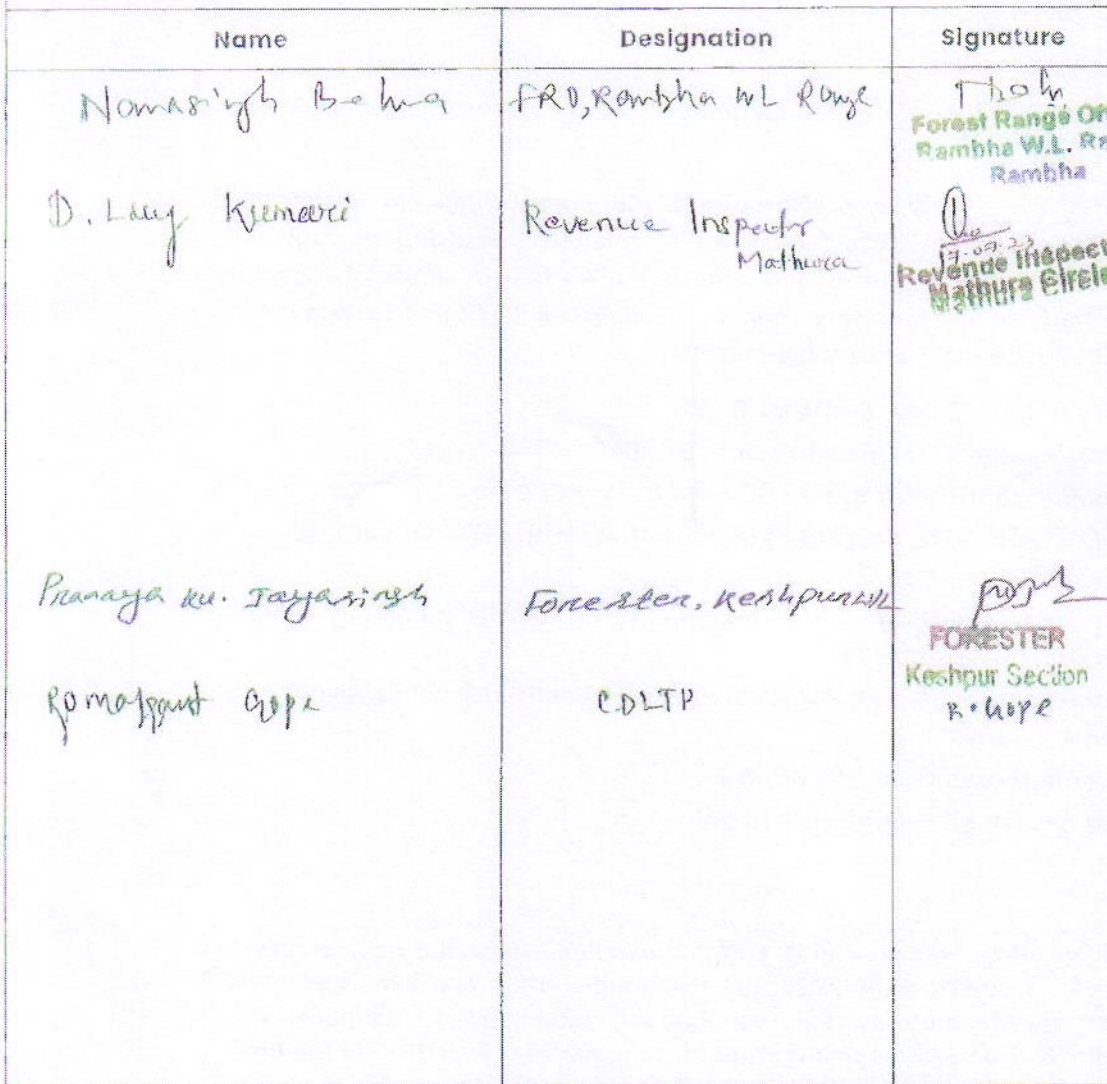 Name Designation Signature
Narasingh Behera FRO, Rambha WL Range
Forest Range Of
Rambha W.L. Ra
Rambha
D. Laxy Kumari Revenue Inspector
Mathura
17.09.23
Revenue Inspect
Mathura Circle
Pranaya ku. Jayasingh Forester, Keshpur
FORESTER
Keshpur Section
Gope CDLTP R. Gope